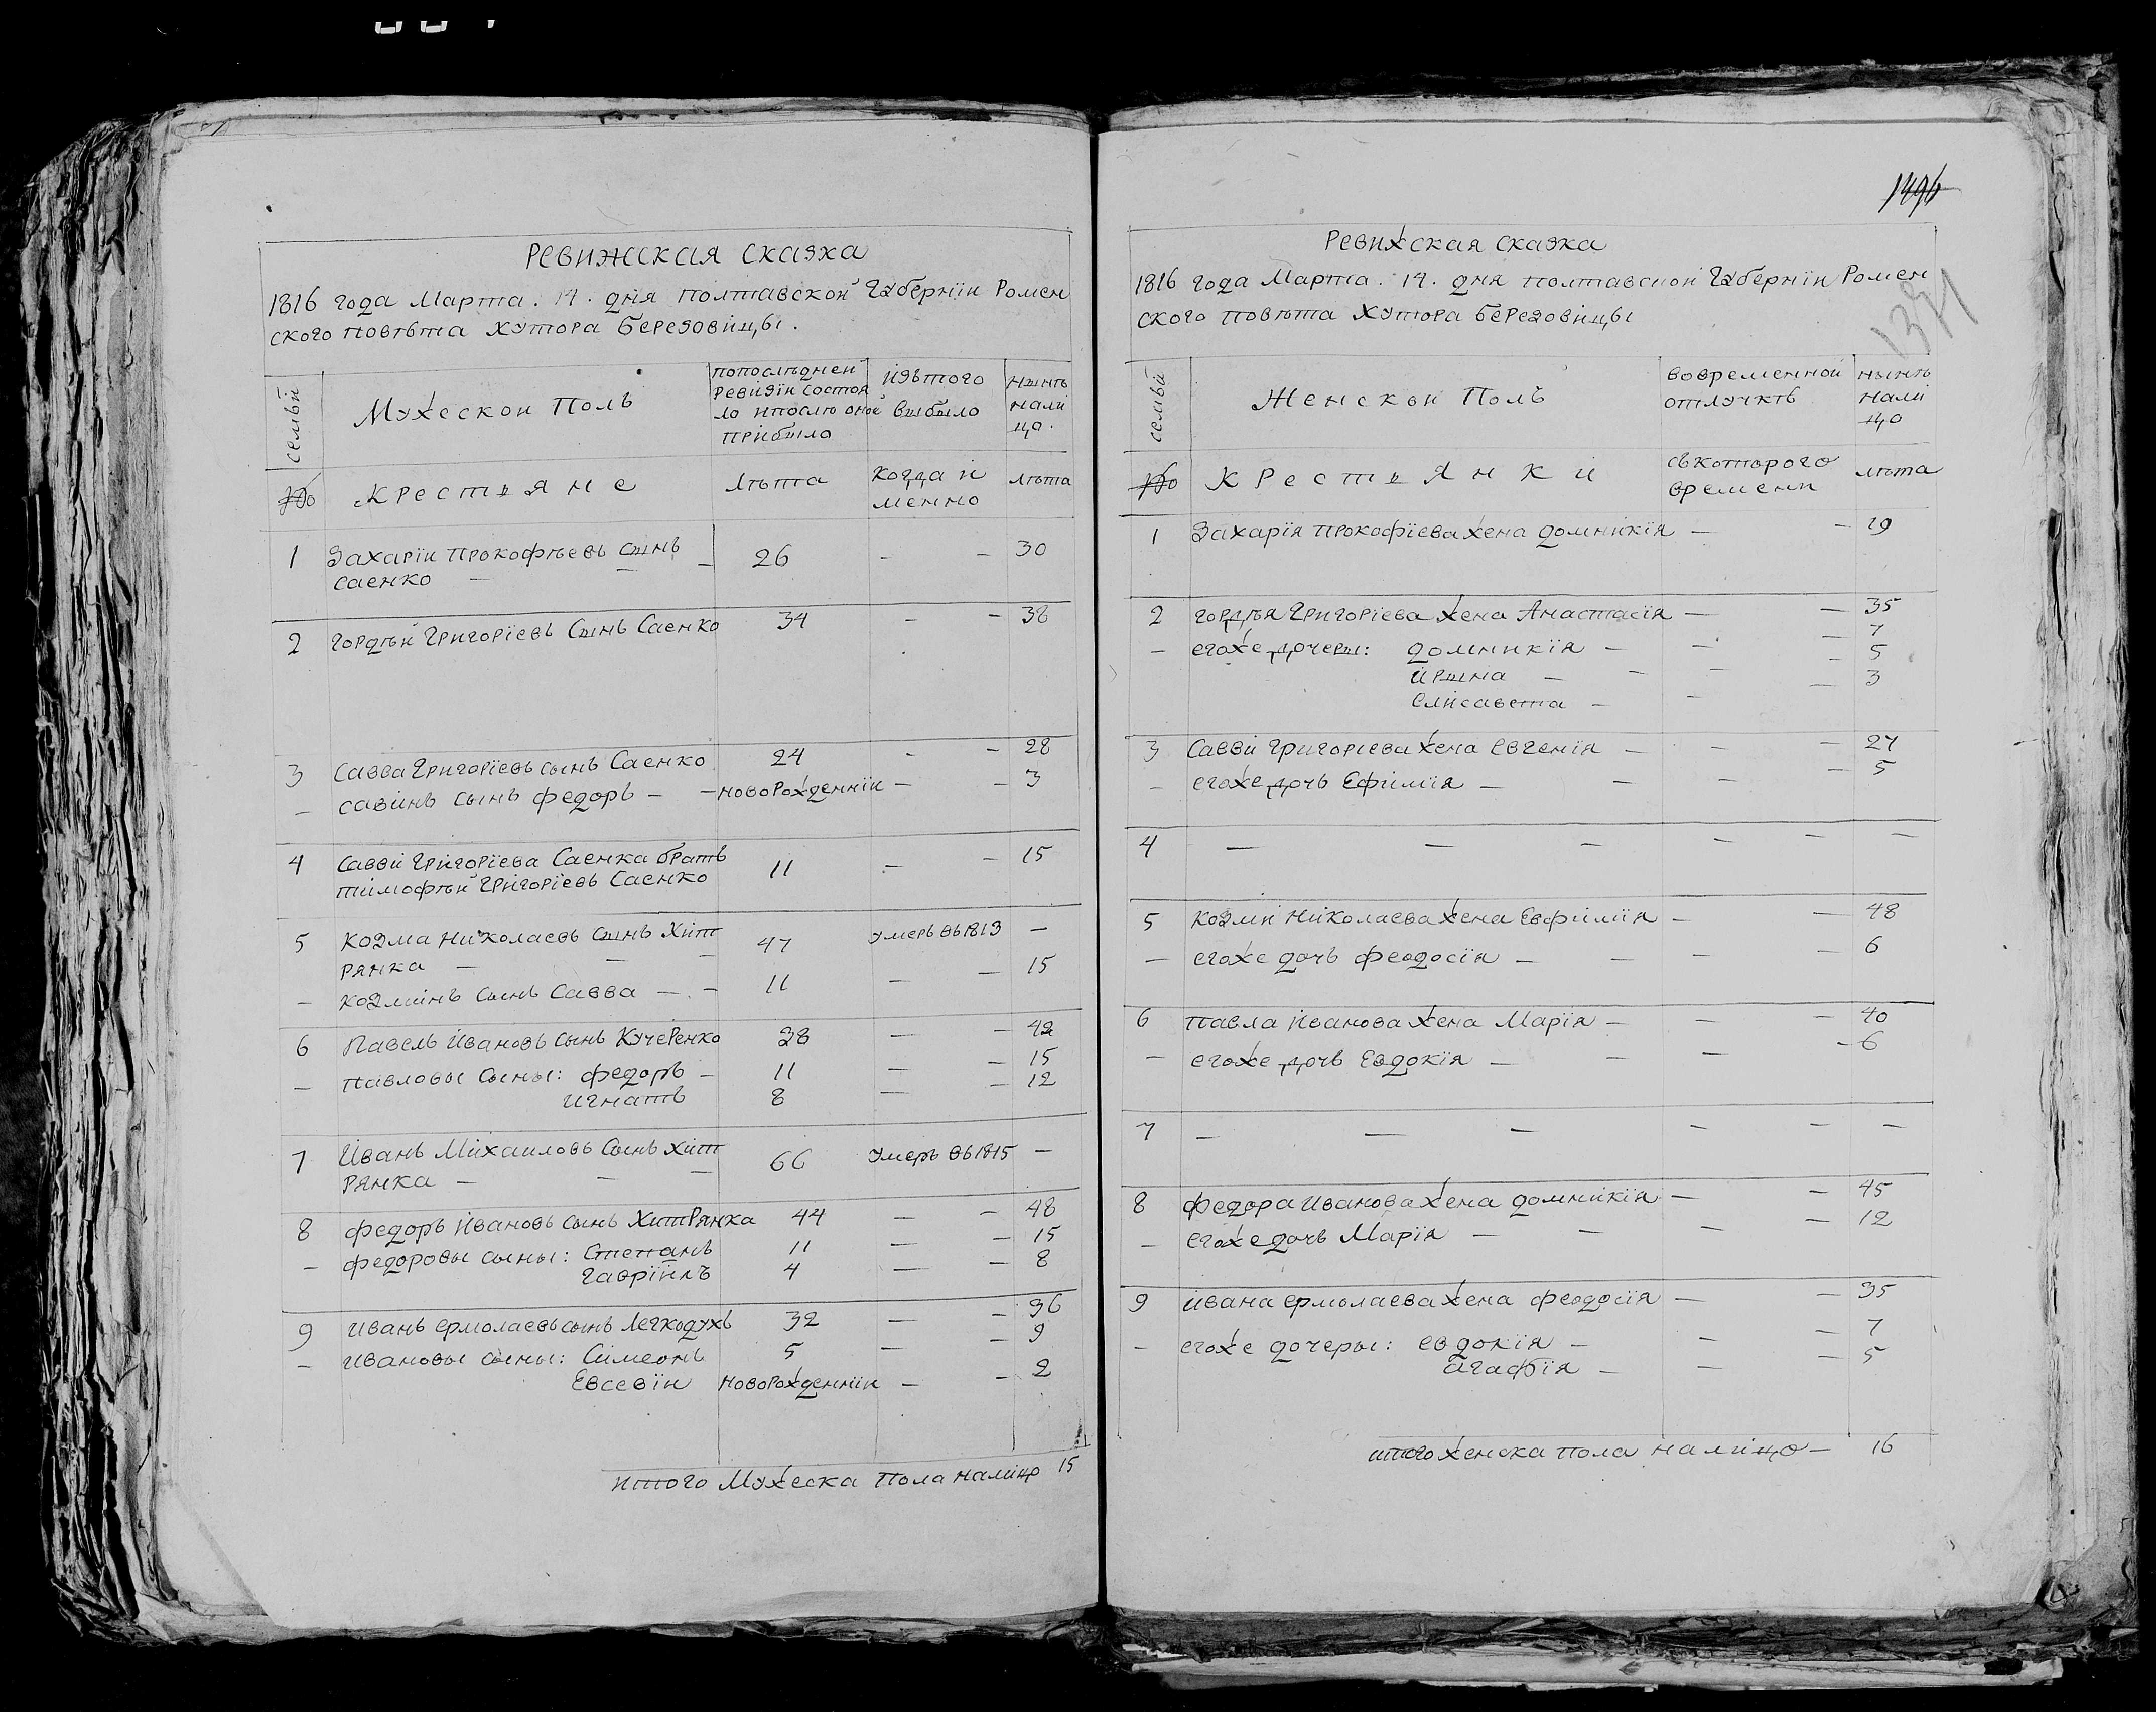 Ревижская сказка
1816 года Марта. 14. дня Полтавской Губернїи Ромен
ского повѣта хутора Березовицы.
семьи
Мужескои Полъ
попослѣднеи
ревизїи состоя
ло ипослѣ оной
прибыло
изъ того
выбыло
нынѣ
нали
цо.
№
Крестьяне
лѣта
когда и
менно
лѣта
1 Захарїи Прокофѣевъ сынъ 26 - - 30
Саенко - - -
2 Гордѣй Григорїевъ Сынъ Саенко 34 - - 38
3 Савва Григорїевъ сынъ Саенко 24 - - 28
- Савинъ сынъ федоръ - - новорожденнїи - - 3
4 Савви Григорїева Саенка братъ 11 - - 15
тимофѣй Григорїевъ Саенко
5 Козма Николаевъ Сынъ Хит 47 умеръ въ 1813 -
рянка - - -
- Козминъ сынъ Савва - - 11 - - 15
6 Павелъ Ивановъ сынъ Кучеренко 38 - - 42
- Павловы сыны: федоръ - 11 - - 15
Игнатъ 8 - - 12
7 Иванъ Михаиловъ Сынъ Хит 66 Умеръ въ 1815 -
рянка - - -
8 федоръ Ивановъ сынъ Хитрянка 44 - - 48
- федоровы сыны: Степанъ 11 - - 15
Гаврїилъ 4 - - 8
9 Иванъ Ермолаевъ сынъ Легкодухъ 32 - - 36
- Ивановы сыны: Симеонъ 5 - - 9
Евсевїи новорожденнїи - - 2
итого Мужеска пола налицо 15
1371
Ревижская сказка
1816 года Марта. 14. дня Полтавской Губернїи Ромен
ского повѣта хутора Березовицы
семьи
Женскои Полъ
вовременной
отлучкѣ
нынѣ
нали
цо
№
Крестьянки
съкоторого
времени
лѣта
1 Захарїя Прокофїева жена домникїя - - 29
2 Гордѣя Григорїева жена Анастасїя - - 35
- егоже дочеры: домникїя - - - 7
Ирына - - - - 5
Елисавета - - - 3
3 Савви Григорїева жена Евгенїя - - - 27
- егоже дочь Ефимїя - - - - 5
4 - - - - - -
5 Козми Николаева жена Евфимїя - - 48
- егоже дочь феодосїя - - - - 6
6 Павла Иванова жена Марїя - - - 40
- егоже дочь Евдокїя - - - - 6
7 - - - - - -
8 Федора Иванова жена домникїя - - 45
- егоже дочь Марїя - - - - 12
9 Ивана Ермолаева жена феодосїя - - 35
- егоже дочеры: Евдокїя - - - 7
Агафїя - - - 5
итого женска пола налицо - 16